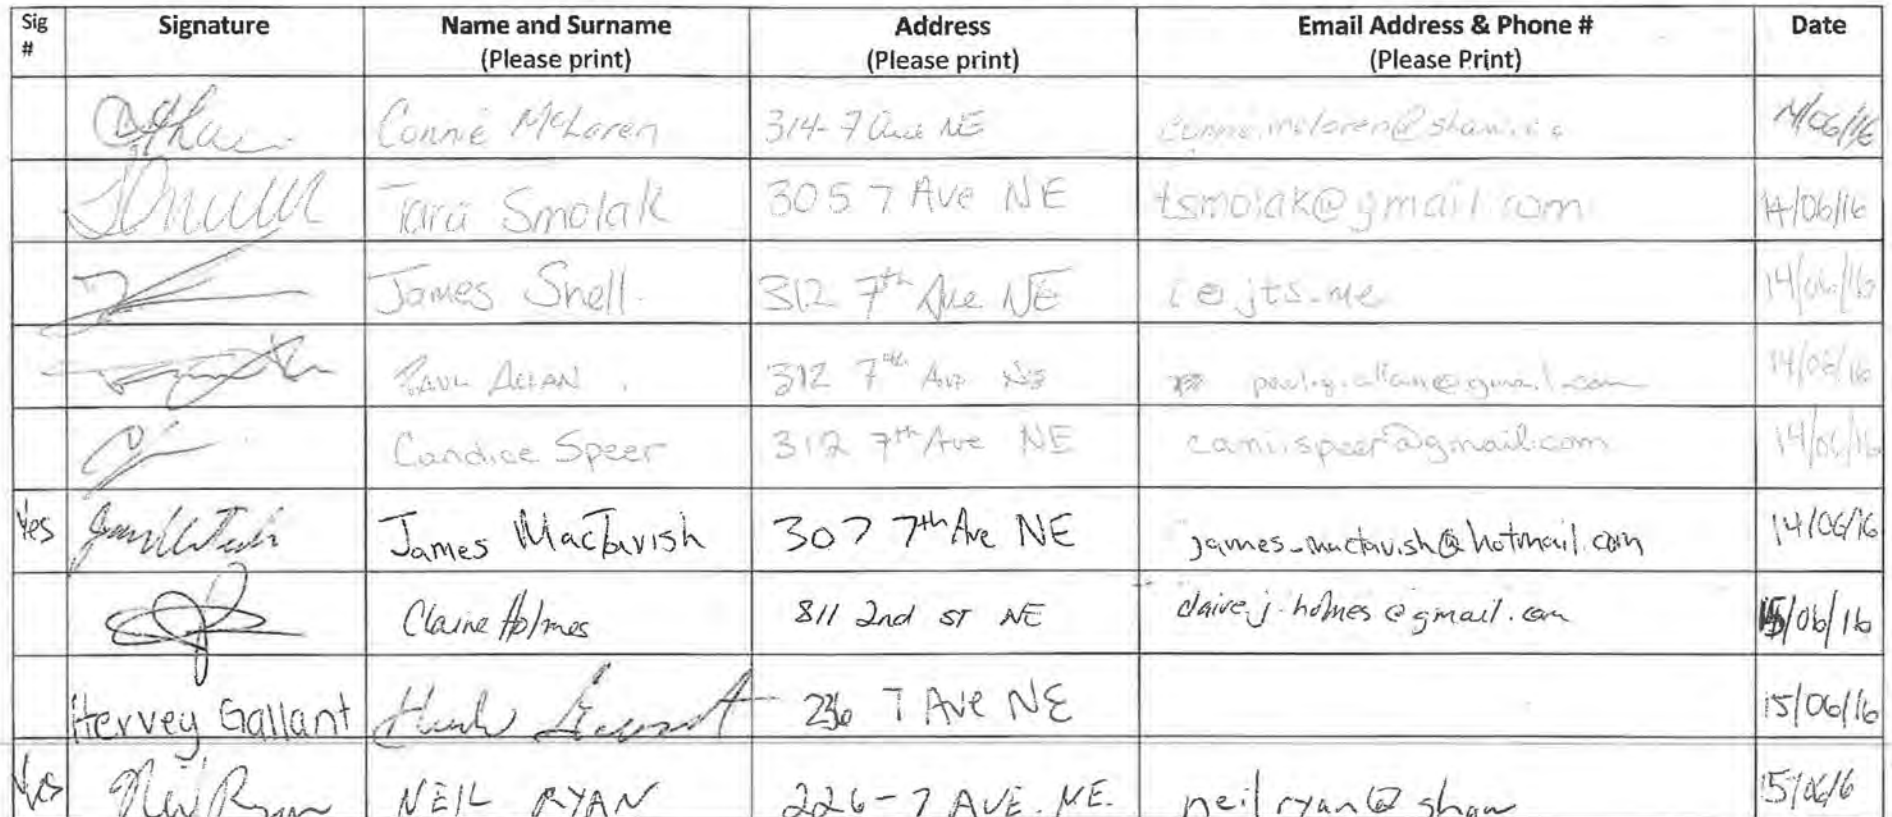 Sig # Signature Name and Surname (Please print) Address (Please print) Email Address & Phone # (Please Print) Date
Connie McLaren 314-7 Ave NE connie.mclaren@shaw.ca 14/06/16
Tara Smolak 305 7 Ave NE tsmolak@gmail.com 14/06/16
James Snell. 312 7th Ave NE i@jts.me 14/06/16
PAUL ALLAN 312 7th Ave NE paul.g.allan@gmail.com 14/06/16
Candice Speer 312 7th Ave NE camispeer@gmail.com 14/06/16
Yes James MacTavish 307 7th Ave NE james_mactavish@hotmail.com 14/06/16
Claire Holmes 811 2nd ST NE claire.j.holmes@gmail.com 15/06/16
Hervey Gallant 236 7 Ave NE 15/06/16
Yes Neil Ryan NEIL RYAN 226-7 AVE. NE. neilryan@shaw 15/06/16